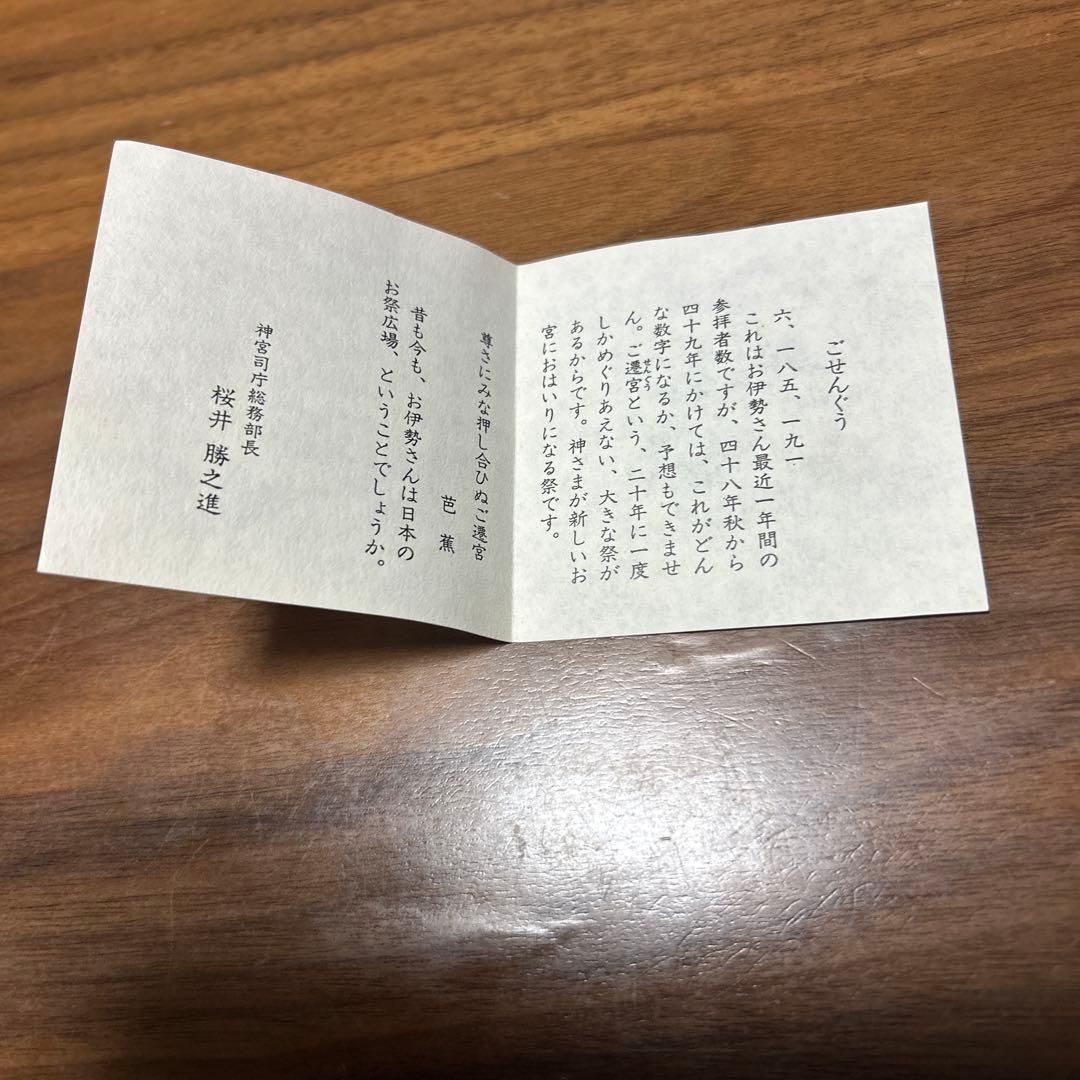 ごせんぐう
六、一八五、一九一
これはお伊勢さん最近一年間の
参拝者数ですが、四十八年秋から
四十九年にかけては、これがどん
な数字になるか、予想もできませ
ん。ご遷宮という、二十年に一度
せんぐう
しかめぐりあえない、大きな祭が
あるからです。神さまが新しいお
宮におはいりになる祭です。
尊さにみな押し合ひぬご遷宮
芭蕉
昔も今も、お伊勢さんは日本の
お祭広場、ということでしょうか。
神宮司庁総務部長
桜井勝之進